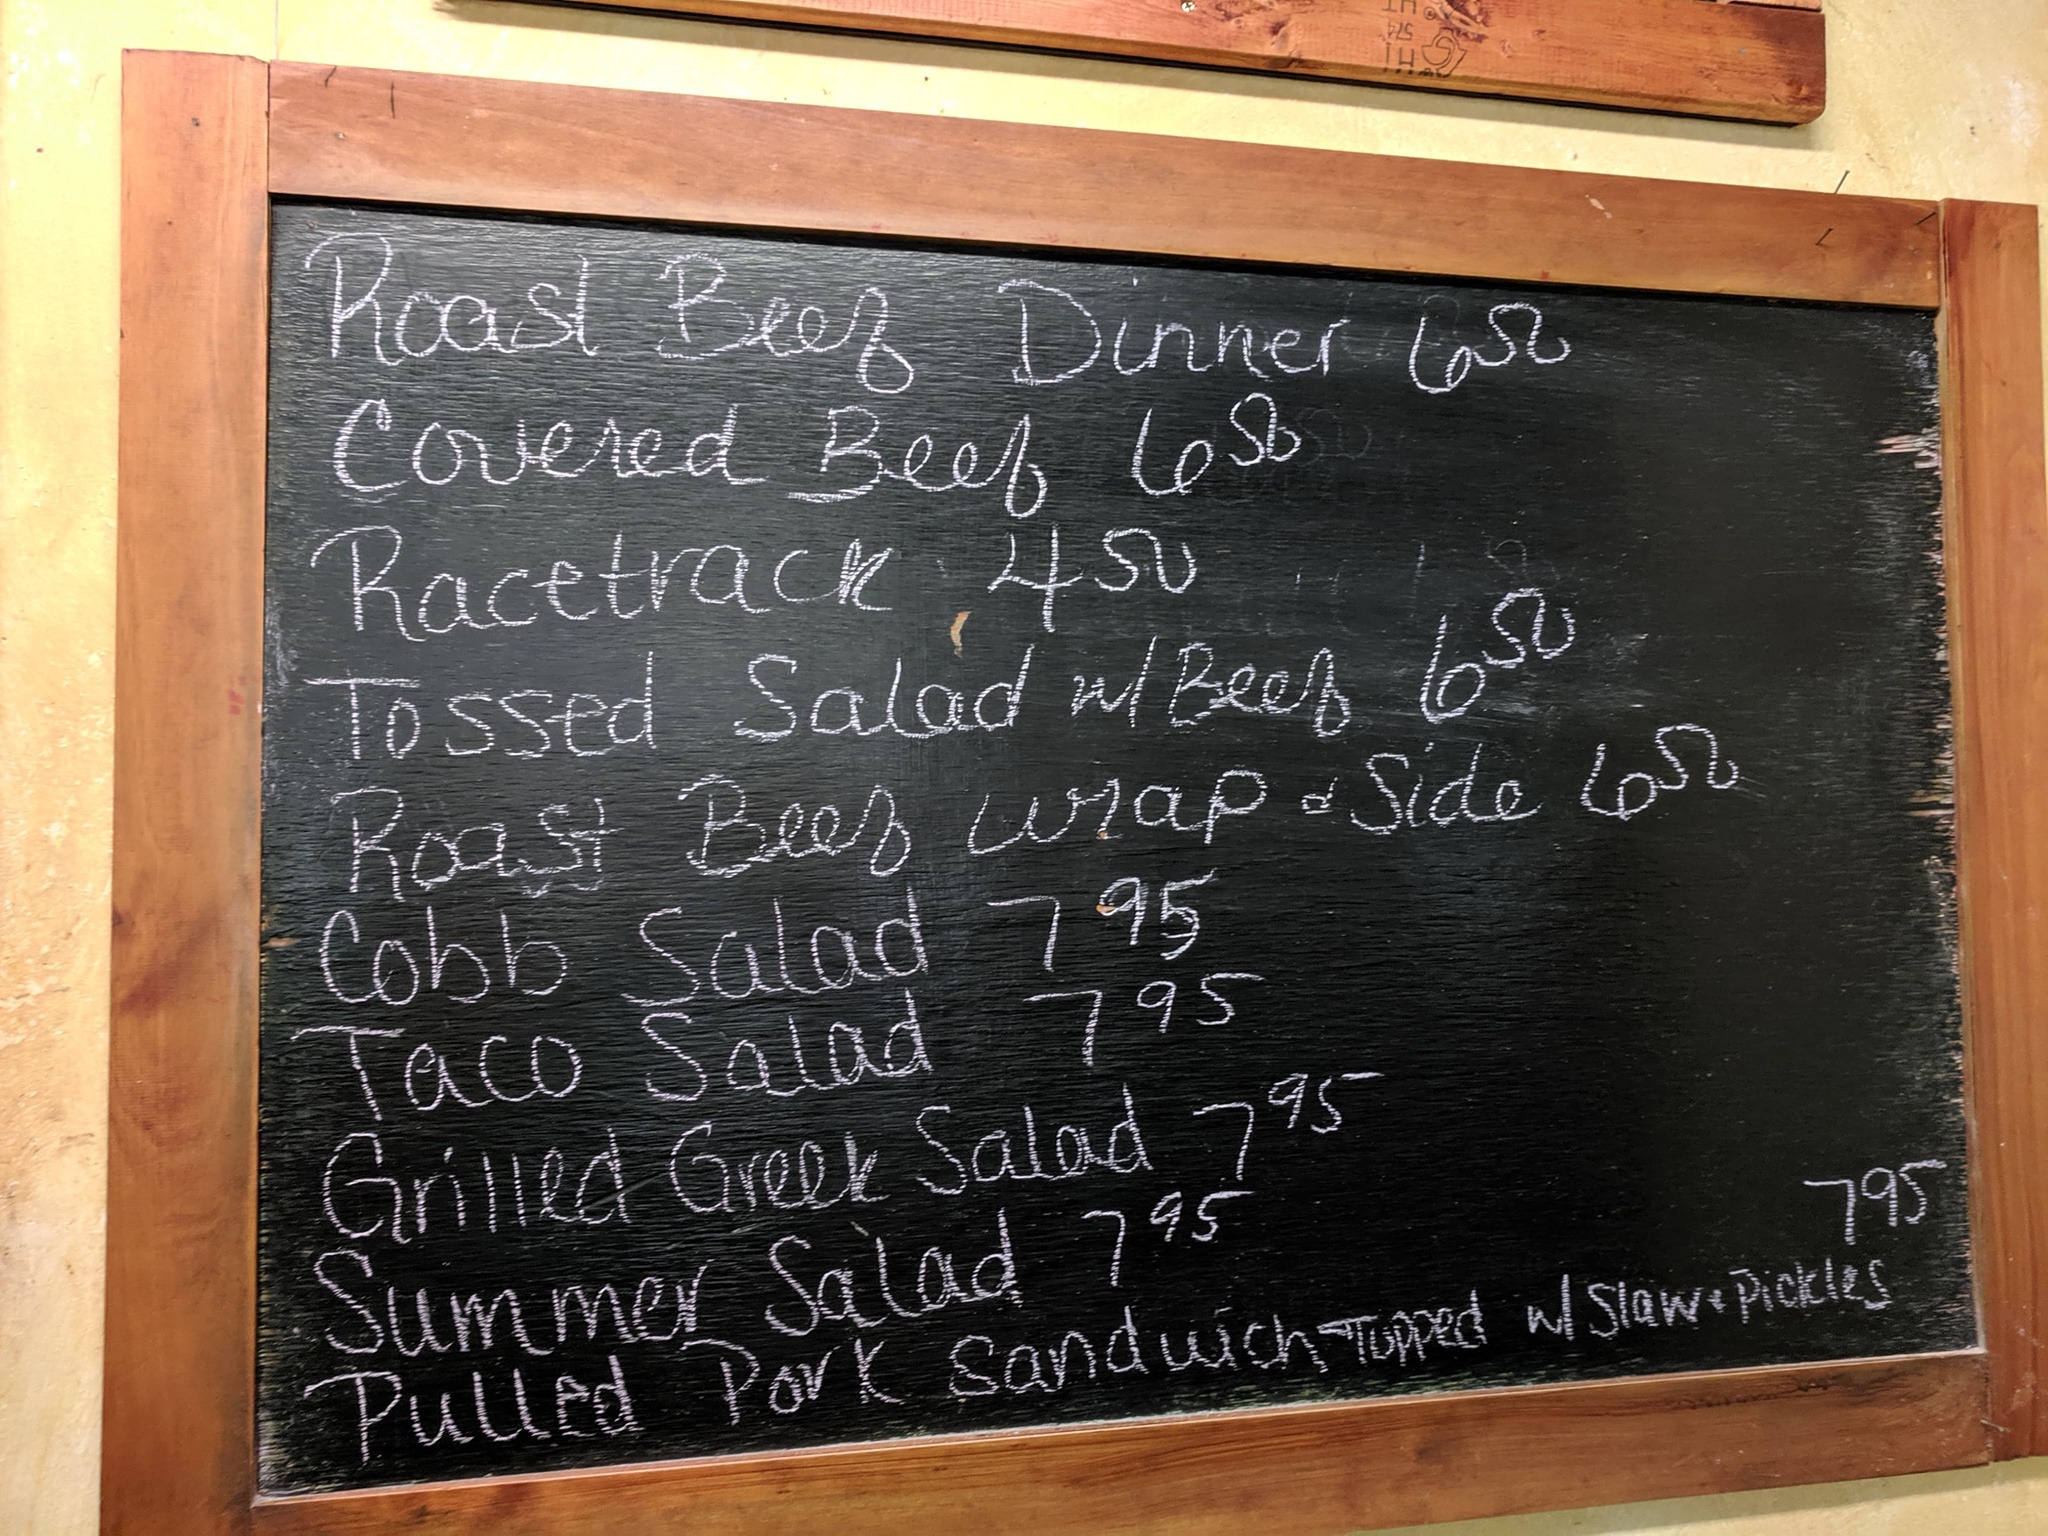 Roast Beef Dinner 6 50
Covered Beef 6 50
Racetrack 4 50
Tossed Salad w/ Beef 6 50
Roast Beef wrap & Side 6 50
Cobb Salad 7 95
Taco Salad 7 95
Grilled Greek Salad 7 95
Summer Salad 7 95
Pulled Pork Sandwich - Topped w/ Slaw + Pickles 7 95